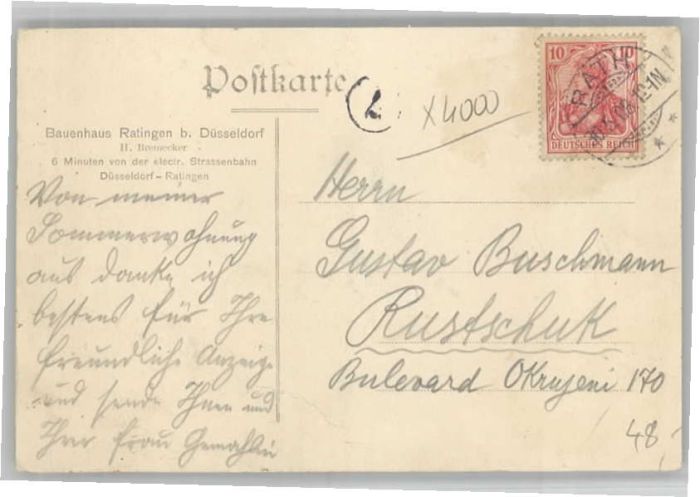 Postkarte
Bauenhaus Ratingen b. Düsseldorf
H. Bremecker
6 Minuten von der electr. Strassenbahn
Düsseldorf – Ratingen
Von meiner
Sommerwohnung
aus danke ich
bestens für Ihre
freundliche Anzeige
und sende Ihnen und
Ihrer Frau Gemahlin
10 10
DEUTSCHES REICH
RATH
12-1N
X4000
Herrn
Gustav Buschmann
Rustschuk
Bulevard Okrujeni 170
48